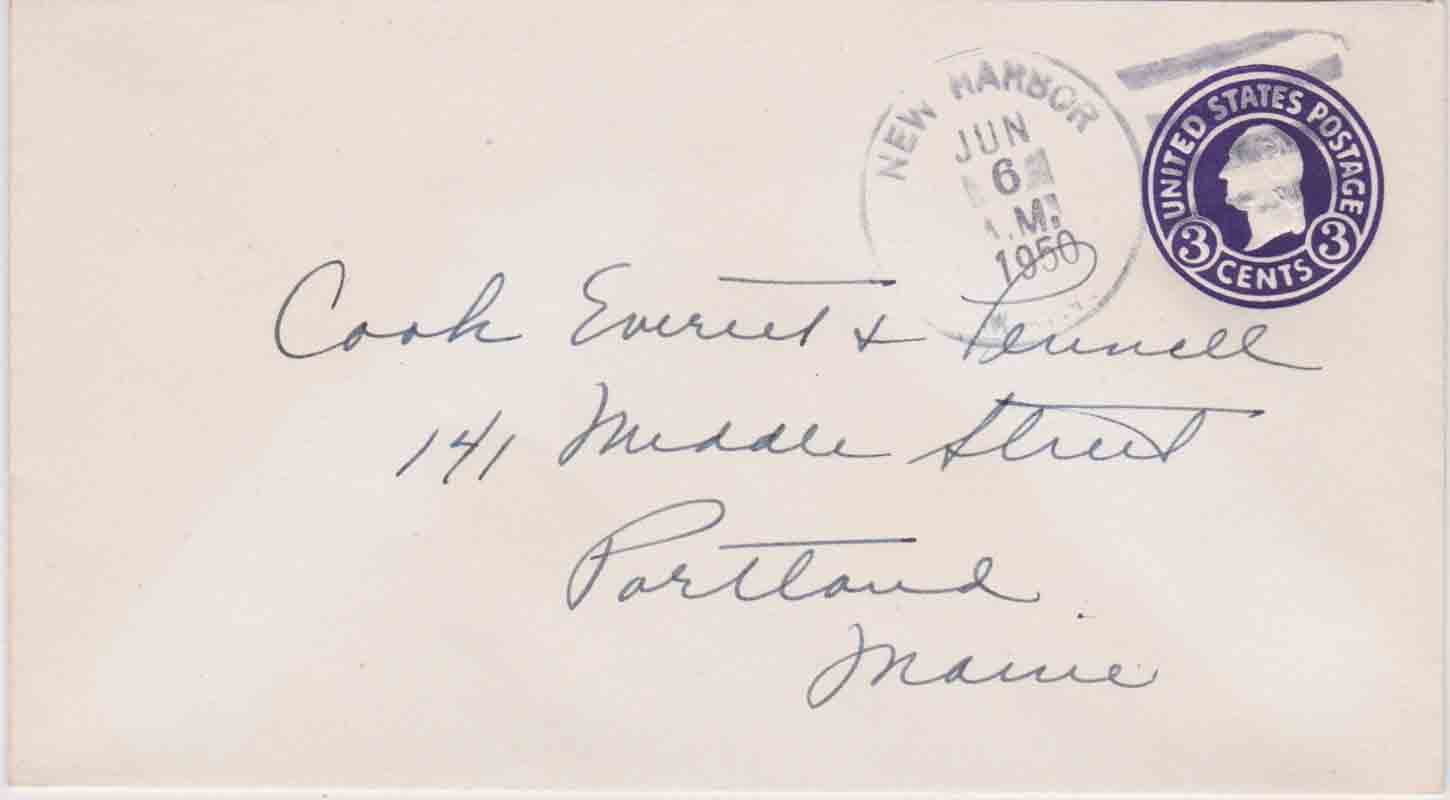 NEW HARBOR
JUN
6
.M.
1950
UNITED STATES POSTAGE
3 CENTS 3
Cook Everett & Pennell
141 Middle Street
Portland
Maine